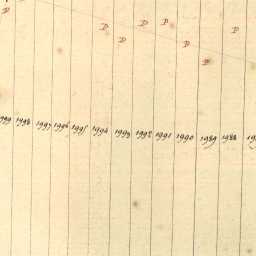 D D D
D D D
D
D
1998 1997 1996 1995 1994 1993 1992 1991 1990 1989 1988